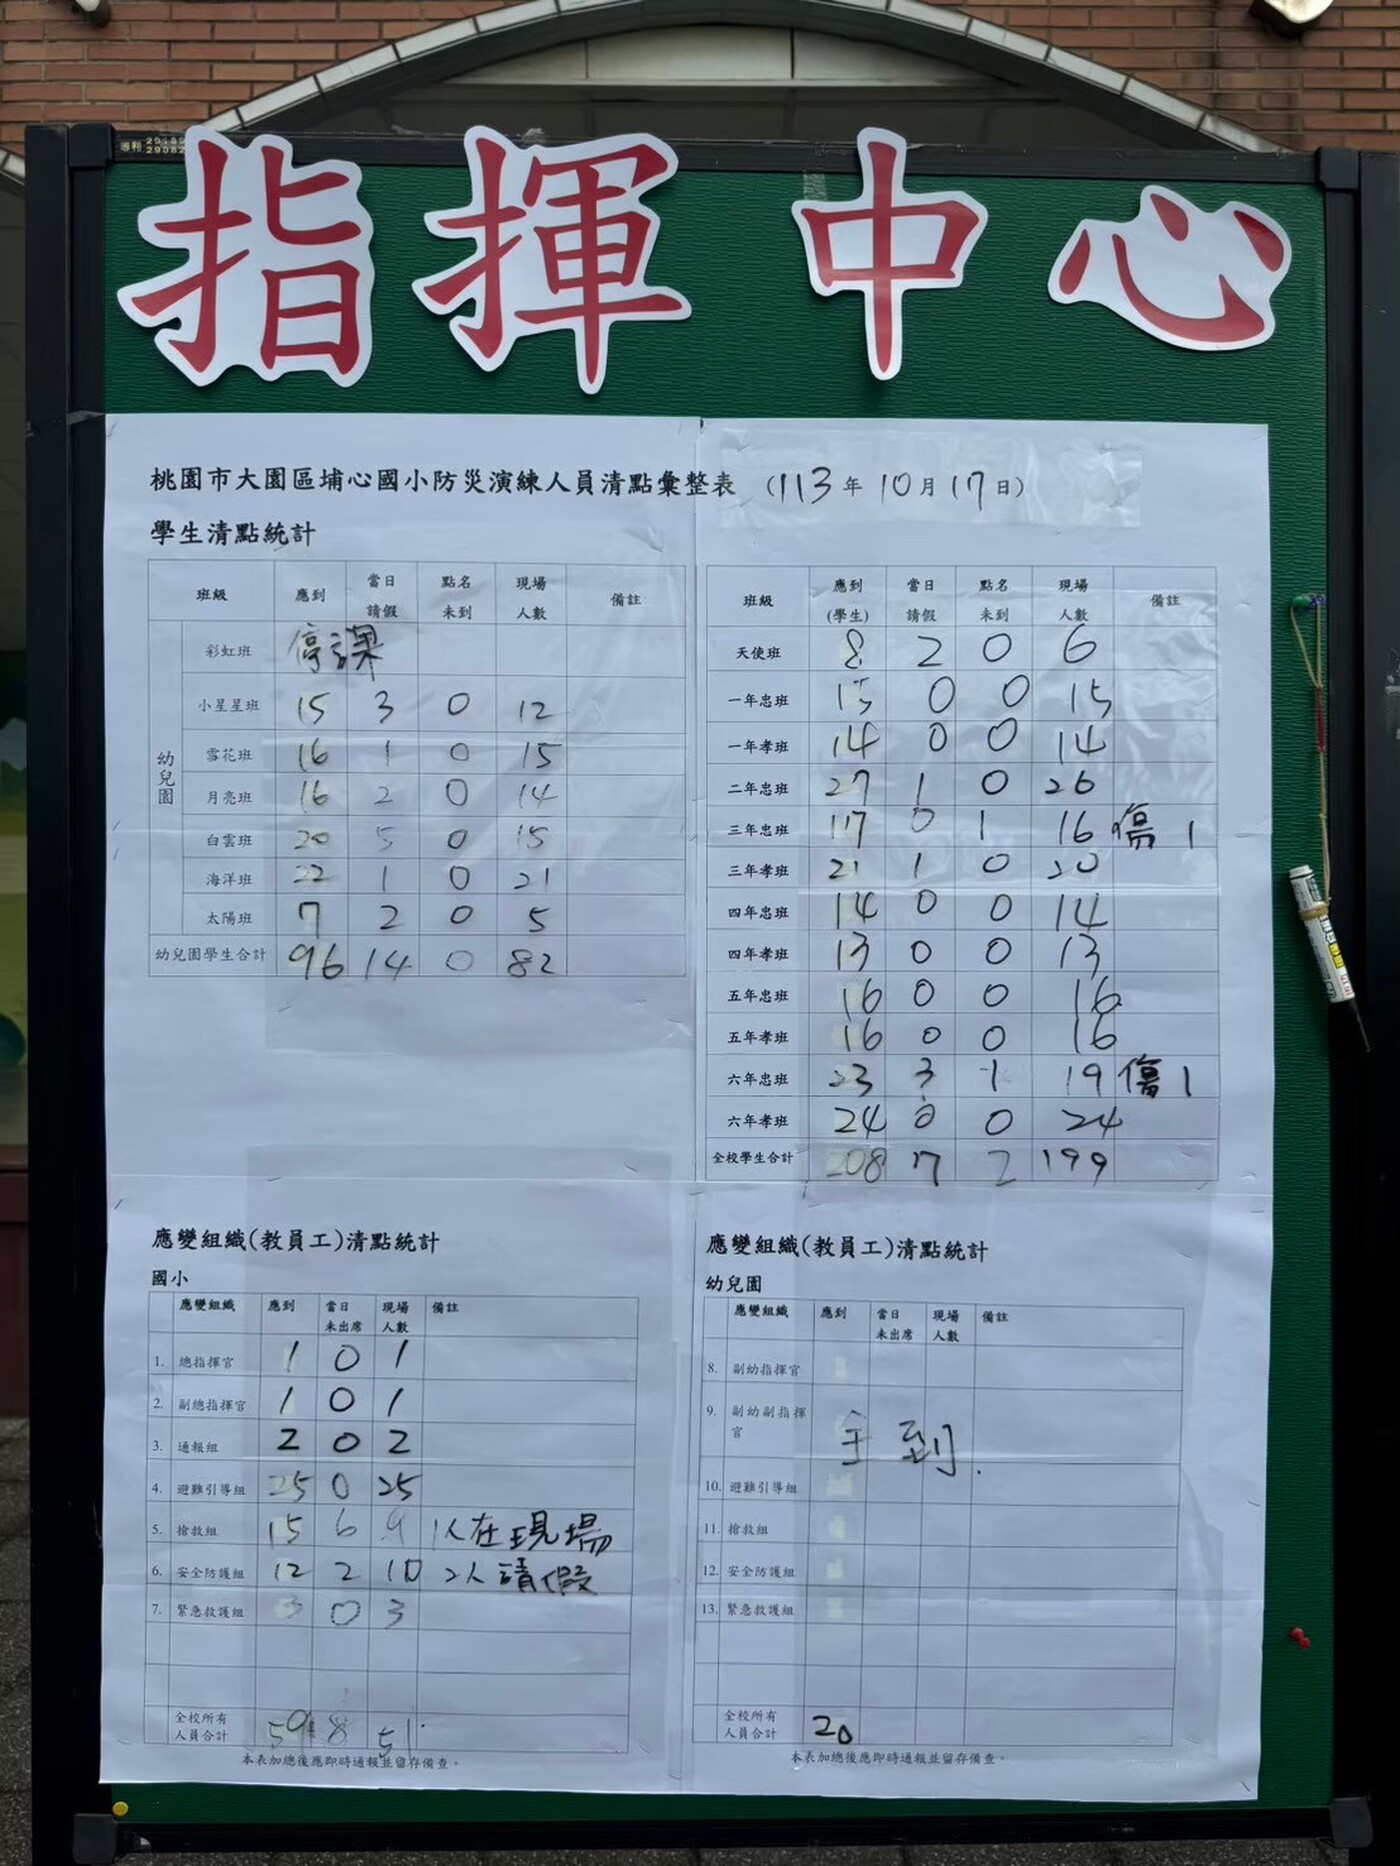 專利
指揮中心
桃園市大園區埔心國小防災演練人員清點彙整表 (113年10月17日)
學生清點統計
班級 應到 當日請假 點名未到 現場人數 備註
幼兒園
彩虹班 停課
小星星班 15 3 0 12
雪花班 16 1 0 15
月亮班 16 2 0 14
白雲班 20 5 0 15
海洋班 22 1 0 21
太陽班 7 2 0 5
幼兒園學生合計 96 14 0 82
班級 應到(學生) 當日請假 點名未到 現場人數 備註
天使班 8 2 0 6
一年忠班 15 0 0 15
一年孝班 14 0 0 14
二年忠班 27 1 0 26
三年忠班 17 0 1 16 傷1
三年孝班 21 1 0 20
四年忠班 14 0 0 14
四年孝班 13 0 0 13
五年忠班 16 0 0 16
五年孝班 16 0 0 16
六年忠班 23 3 1 19 傷1
六年孝班 24 0 0 24
全校學生合計 208 7 2 199
應變組織(教員工)清點統計
國小
應變組織 應到 當日未出席 現場人數 備註
1. 總指揮官 1 0 1
2. 副總指揮官 1 0 1
3. 通報組 2 0 2
4. 避難引導組 25 0 25
5. 搶救組 15 6 9 以在現場
6. 安全防護組 12 2 10 2人請假
7. 緊急救護組 3 0 3
全校所有人員合計 59 8 51
本表加總後應即時通報並留存備查。
應變組織(教員工)清點統計
幼兒園
應變組織 應到 當日未出席 現場人數 備註
8. 副幼指揮官
9. 副幼副指揮官 全到.
10. 避難引導組
11. 搶救組
12. 安全防護組
13. 緊急救護組
全校所有人員合計 20
本表加總後應即時通報並留存備查。